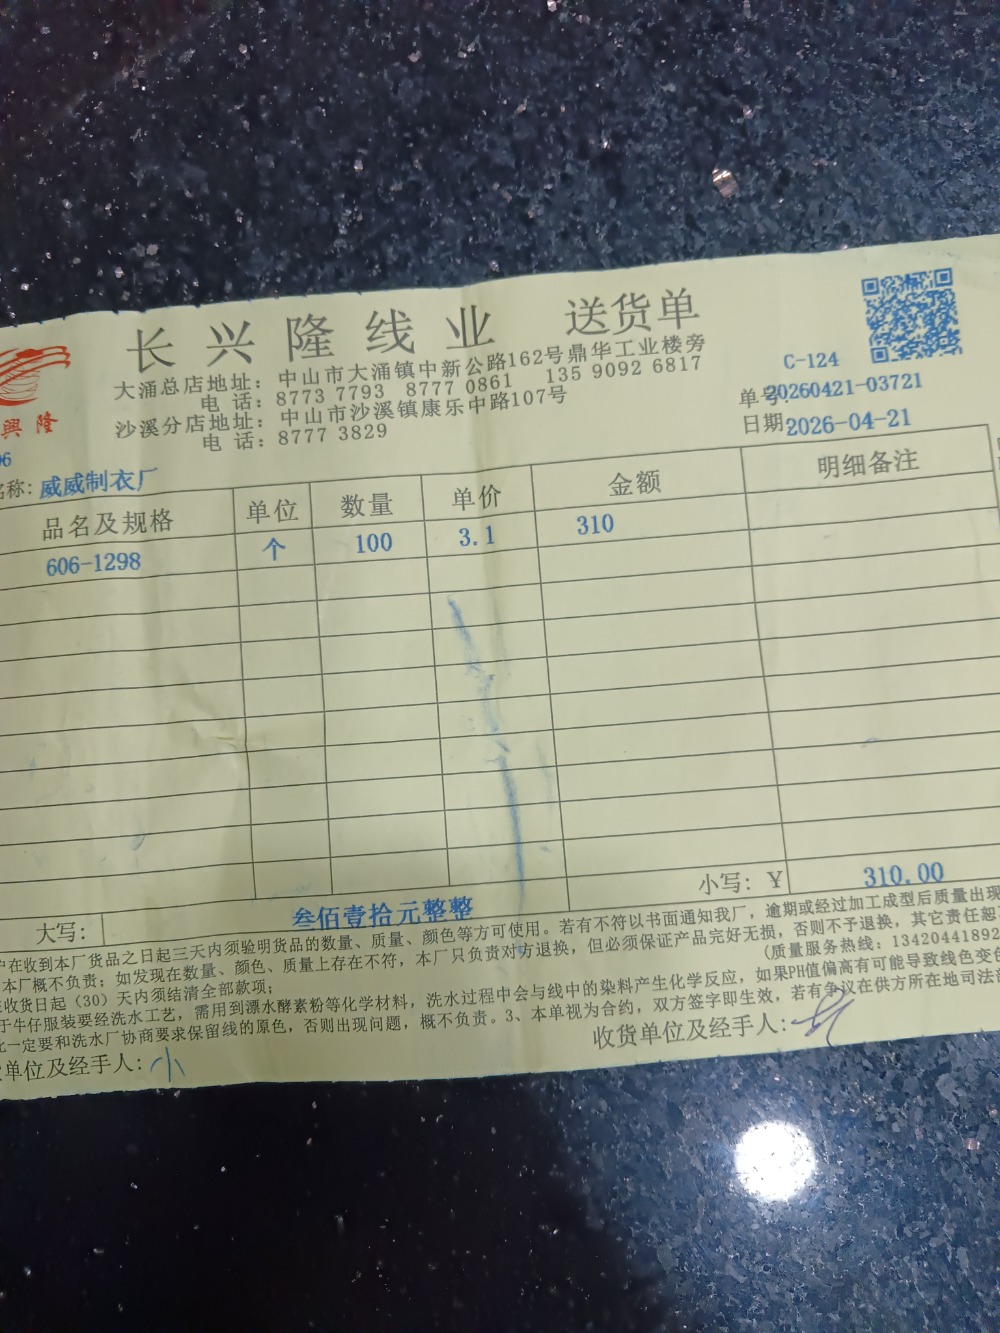 长兴隆线业 送货单
大涌总店地址：中山市大涌镇中新公路162号鼎华工业楼旁
电 话：8773 7793 8777 0861 135 9092 6817
沙溪分店地址：中山市沙溪镇康乐中路107号
电 话：8777 3829
興隆
C-124
单号:20260421-03721
日期:2026-04-21
06
名称: 威威制衣厂
品名及规格 单位 数量 单价 金额 明细备注
606-1298 个 100 3.1 310
小写：￥ 310.00
大写： 叁佰壹拾元整整
户在收到本厂货品之日起三天内须验明货品的数量、质量、颜色等方可使用。若有不符以书面通知我厂，逾期或经过加工成型后质量出现
本厂概不负责；如发现在数量、颜色、质量上存在不符，本厂只负责对方退换，但必须保证产品完好无损，否则不予退换，其它责任恕
收货日起（30）天内须结清全部款项；
(质量服务热线：13420441892
于牛仔服装要经洗水工艺，需用到漂水酵素粉等化学材料，洗水过程中会与线中的染料产生化学反应，如果PH值偏高有可能导致线色变
此一定要和洗水厂协商要求保留线的原色，否则出现问题，概不负责。3、本单视为合约，双方签字即生效，若有争议在供方所在地司法
单位及经手人：小
收货单位及经手人：